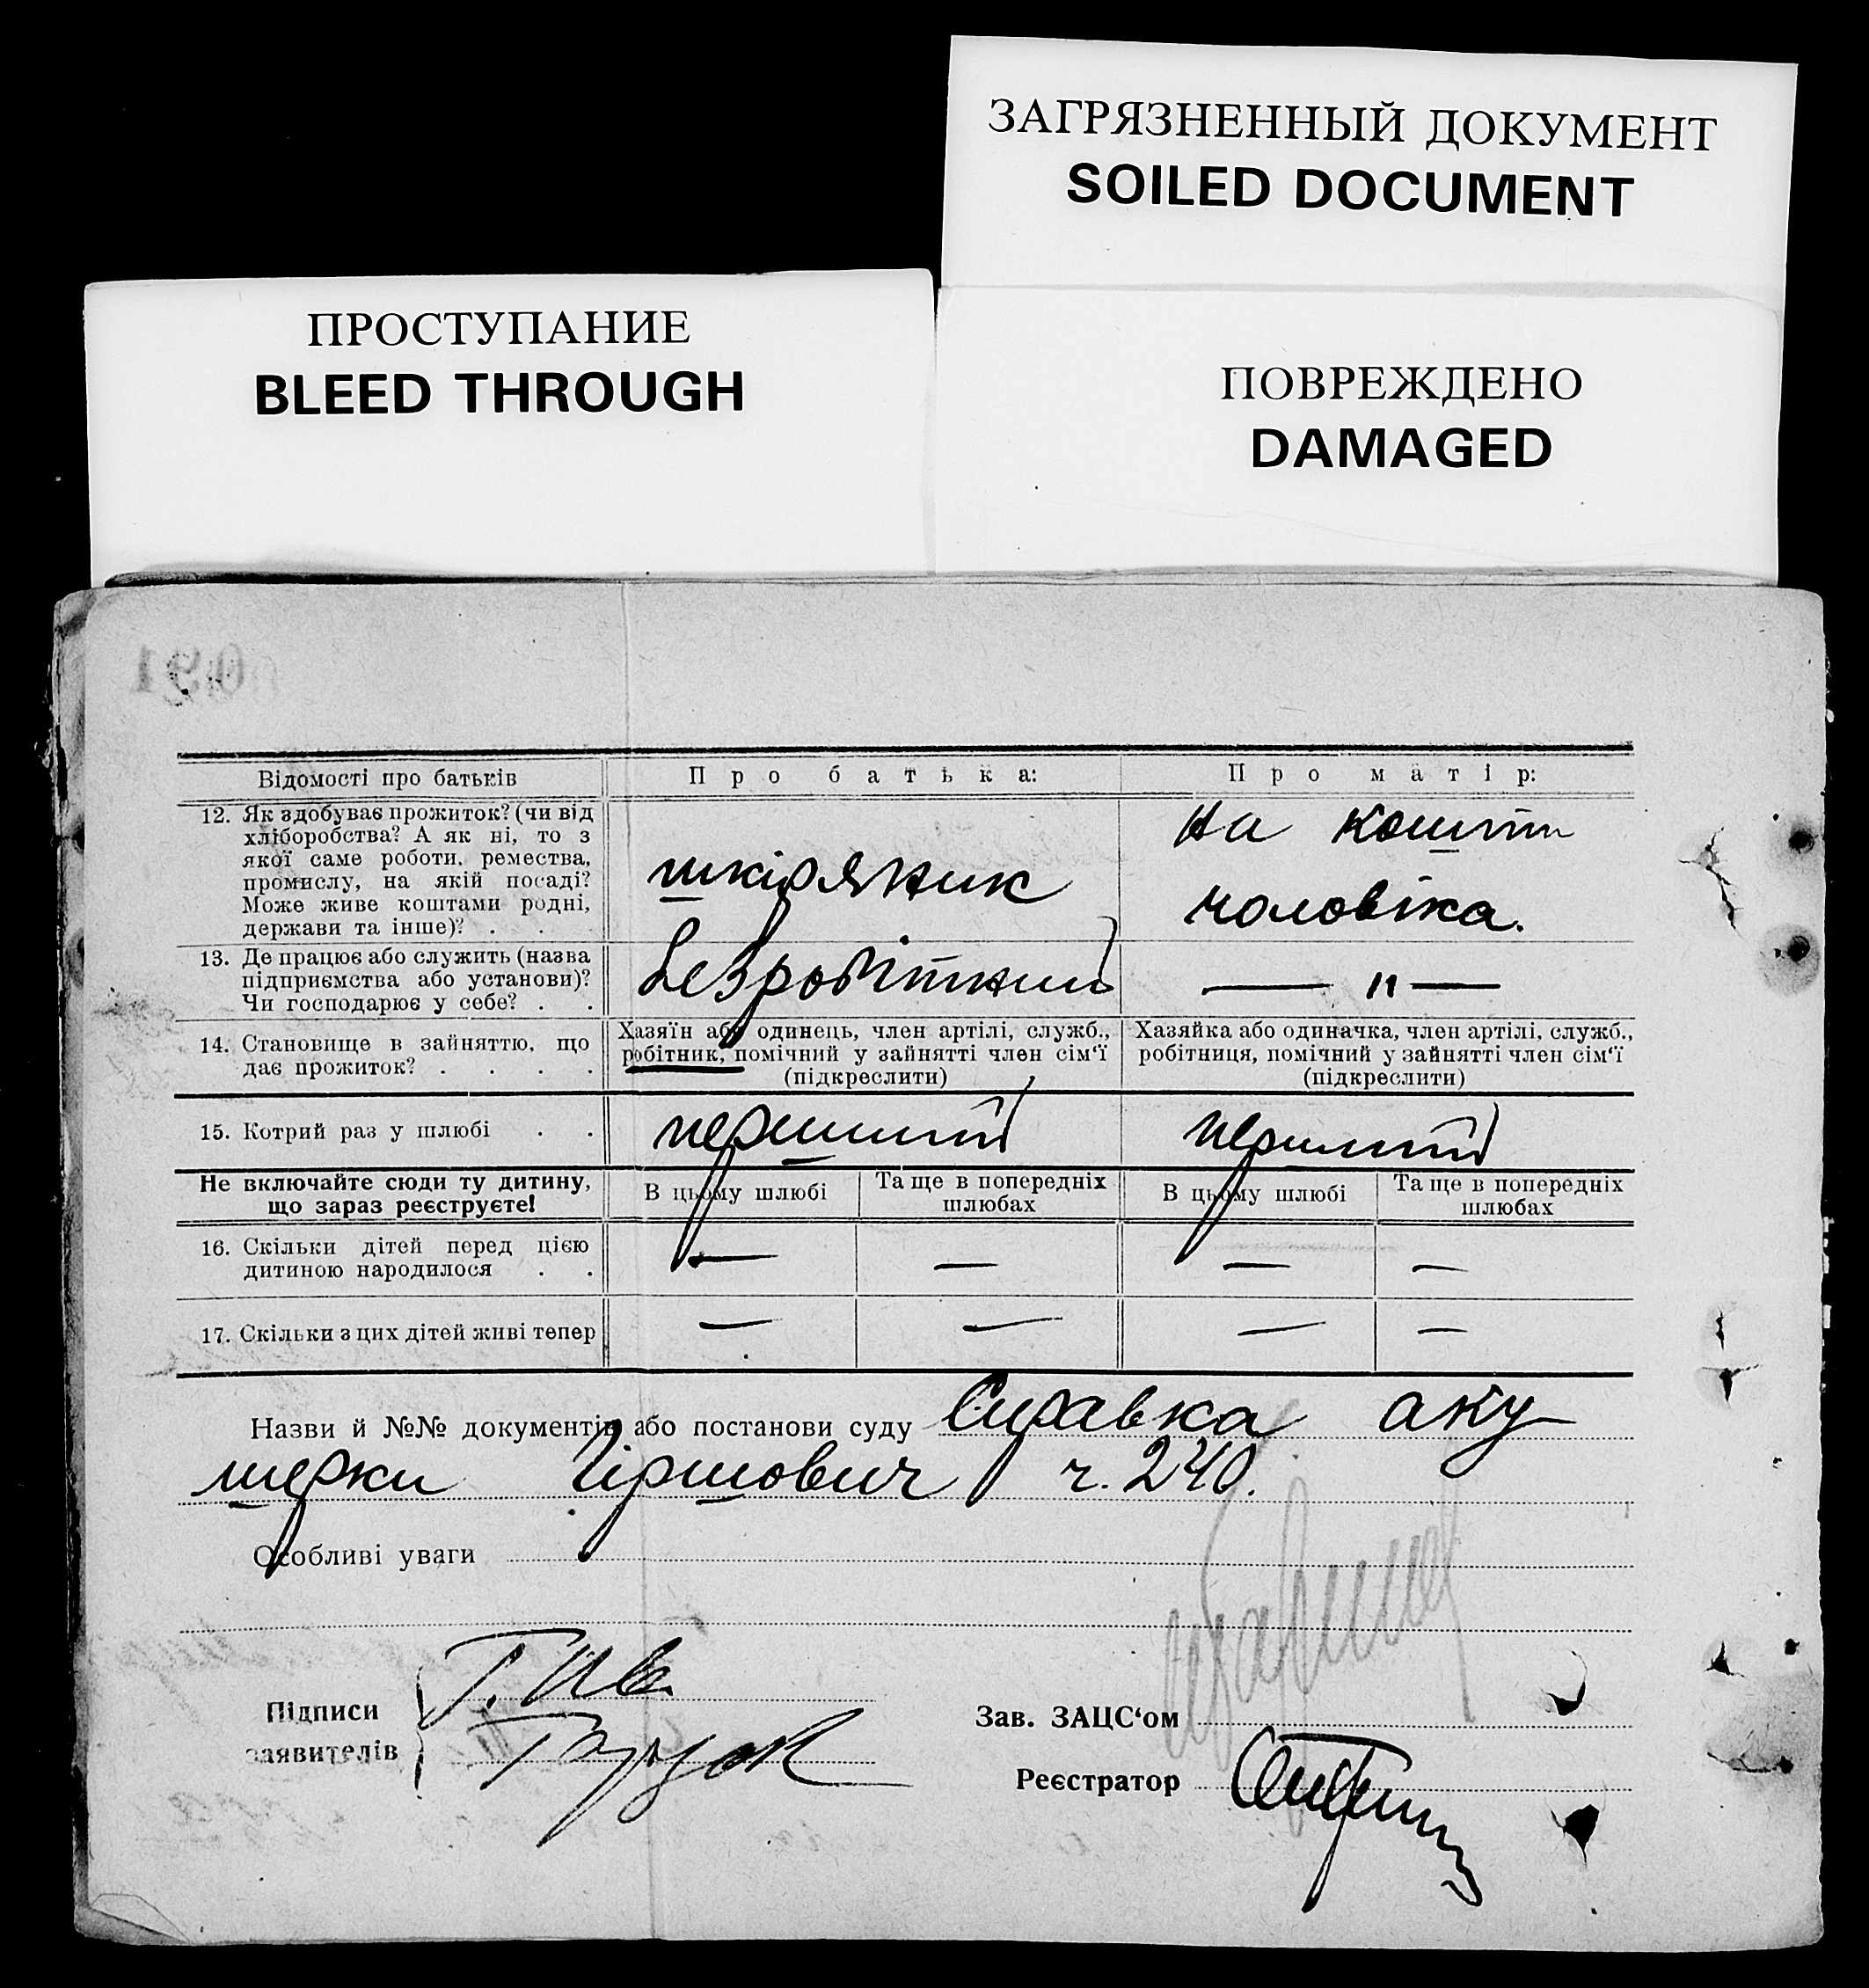 ЗАГРЯЗНЕННЫЙ ДОКУМЕНТ
SOILED DOCUMENT
ПРОСТУПАНИЕ
BLEED THROUGH
ПОВРЕЖДЕНО
DAMAGED
Відомості про батьків
Про батька:
Про матір:
12. Як здобуває прожиток? (чи від
хліборобства? А як ні, то з
якої саме роботи, ремества,
промислу, на якій посаді?
Може живе коштами родні,
держави та інше)? . . .
шкіряник
на кошти
чоловіка.
13. Де працює або служить (назва
підприємства або установи)?
Чи господарює у себе? . .
безробітний
— " —
14. Становище в зайняттю, що
дає прожиток? . . . .
Хазяїн або одинець, член артілі, служб.,
робітник, помічний у зайнятті член сім'ї
(підкреслити)
Хазяйка або одиначка, член артілі, служб.,
робітниця, помічний у зайнятті член сім'ї
(підкреслити)
15. Котрий раз у шлюбі . .
перший
перший
Не включайте сюди ту дитину,
що зараз реєструєте!
В цьому шлюбі
Та ще в попередніх
шлюбах
В цьому шлюбі
Та ще в попередніх
шлюбах
16. Скільки дітей перед цією
дитиною народилося . .
— — — —
17. Скільки з цих дітей живі тепер
— — — —
Назви й №№ документів або постанови суду Справка аку
шерки Гіршович ч. 240.
Особливі уваги
Підписи
заявителів
Зав. ЗАЦС'ом
Реєстратор